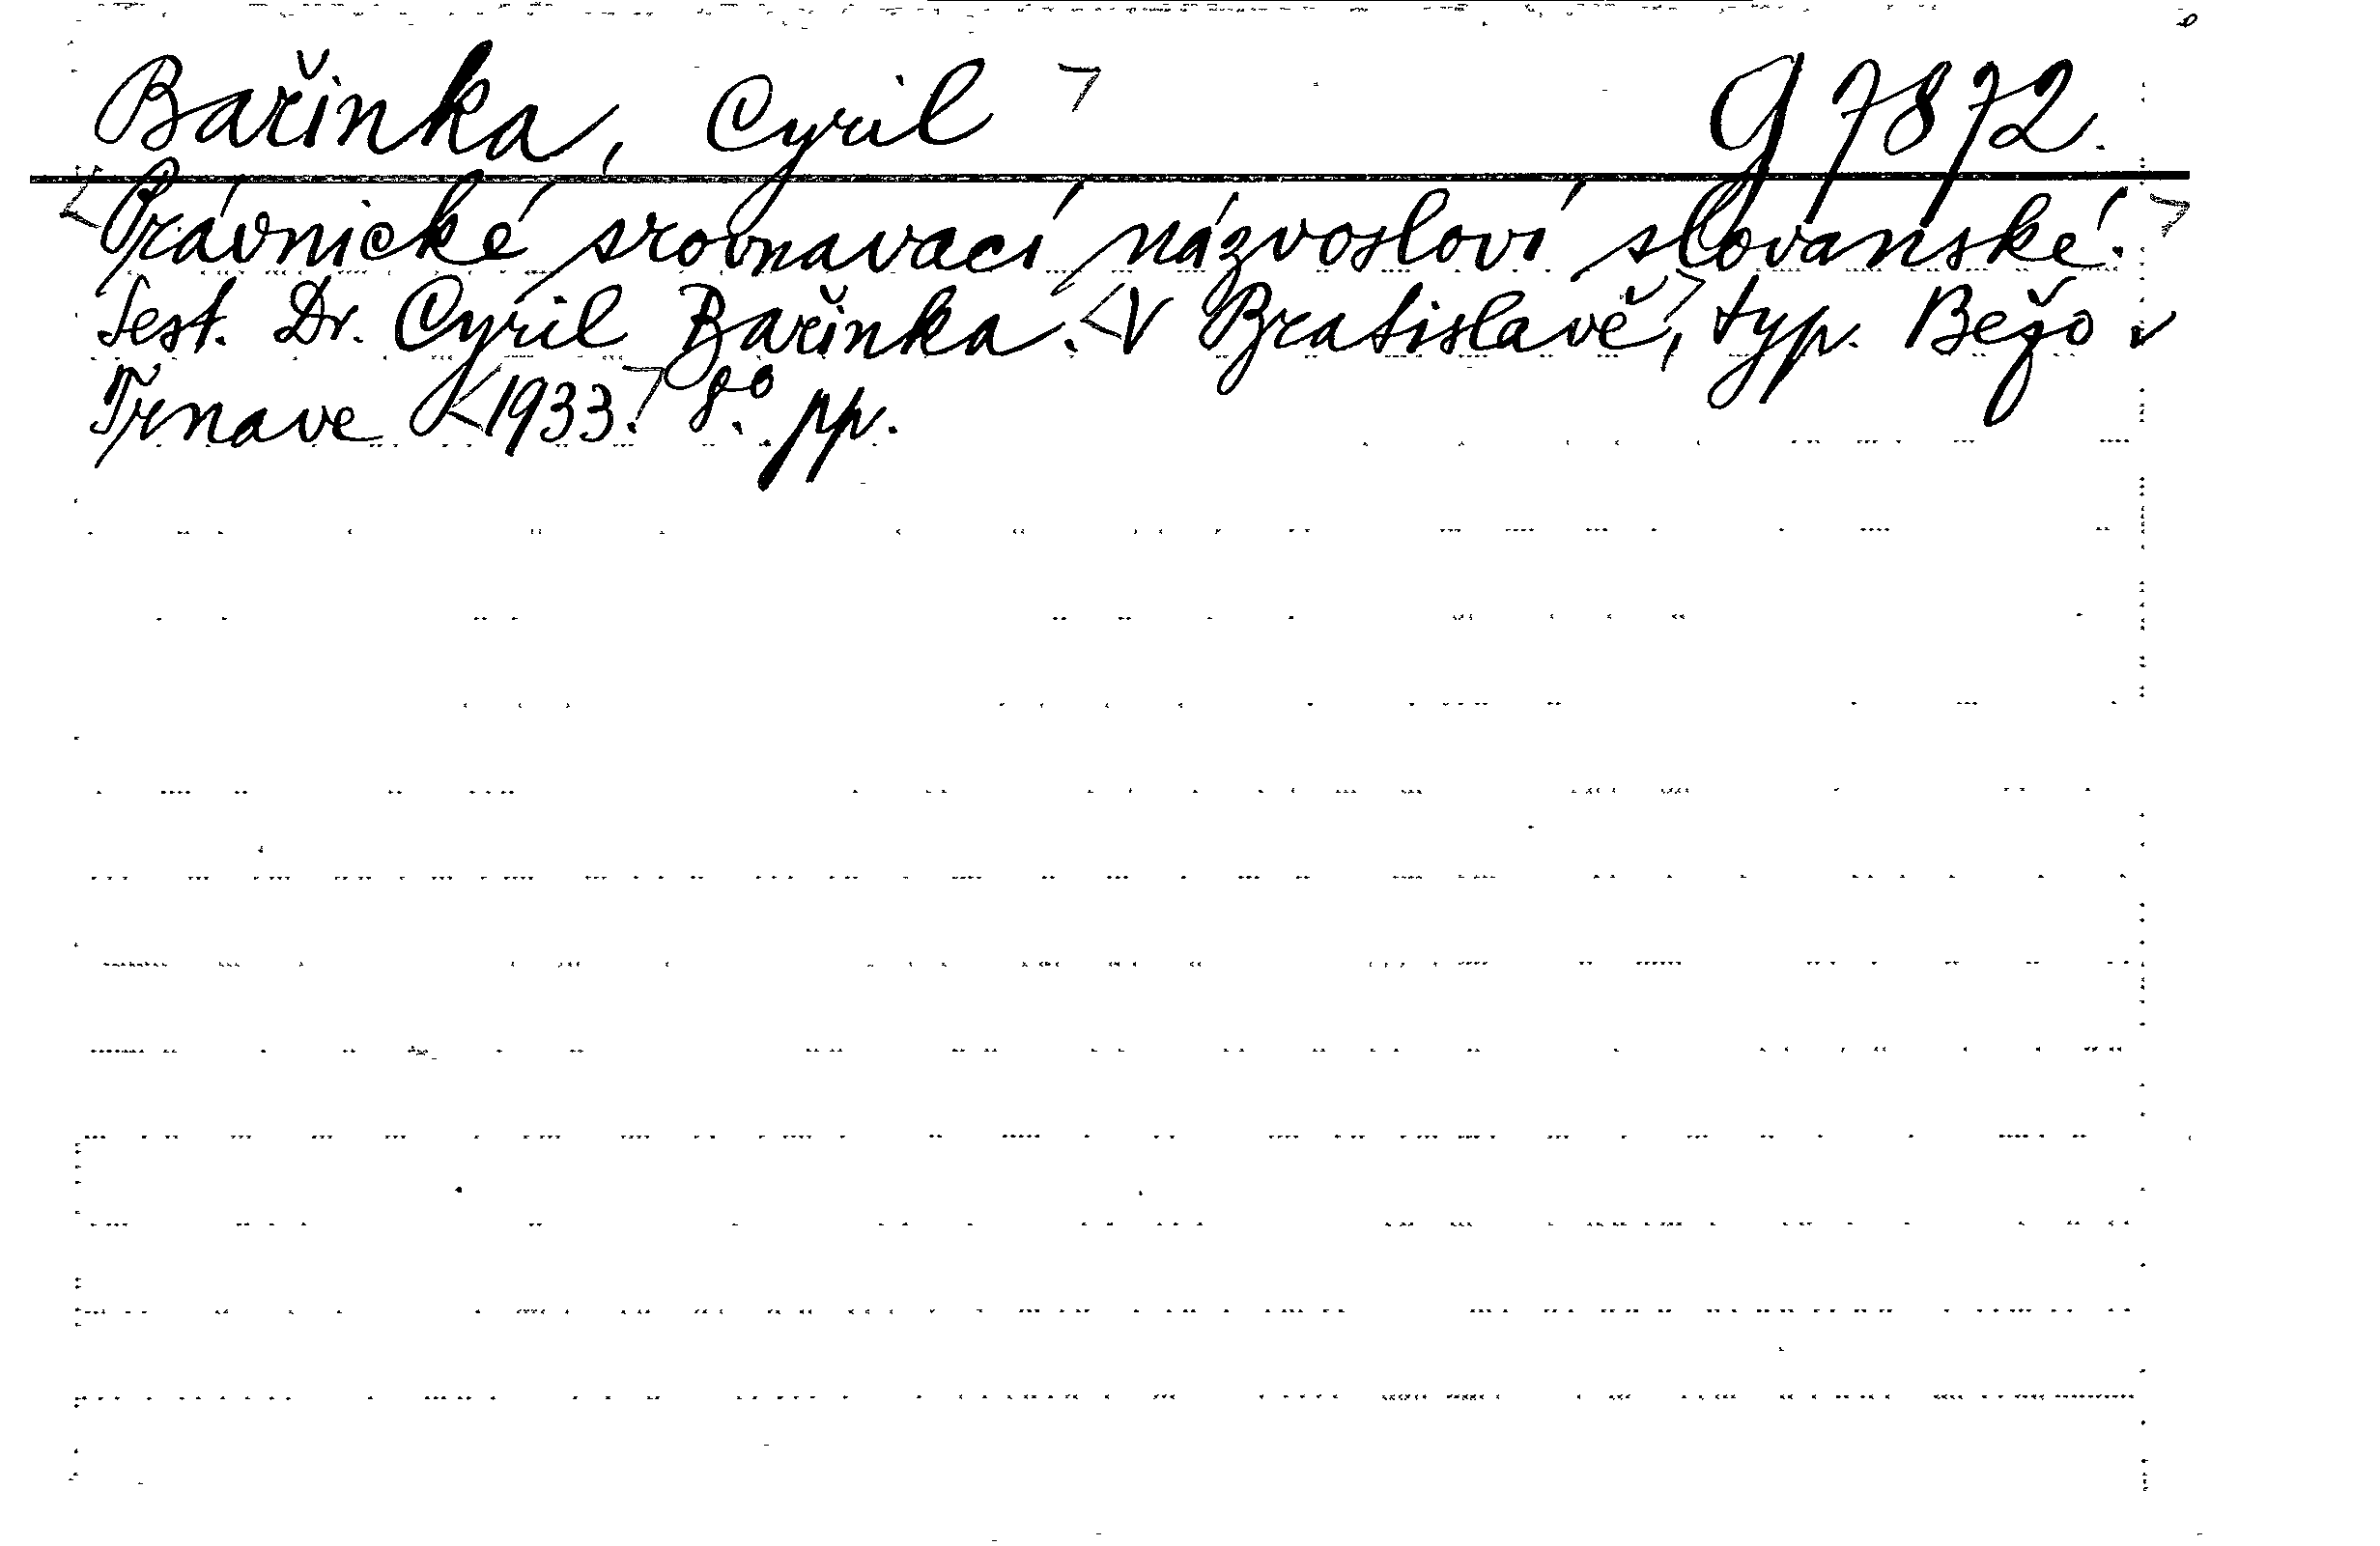 Bařinka, Cyril ⌝ G 7872.
<Právnické srovnavací názvosloví slovanské.⌝
Sest. Dr. Cyril Bařinka. <V Bratislavě⌝, typ. Bežo v
Trnave <1933.⌝ 8.° pp.